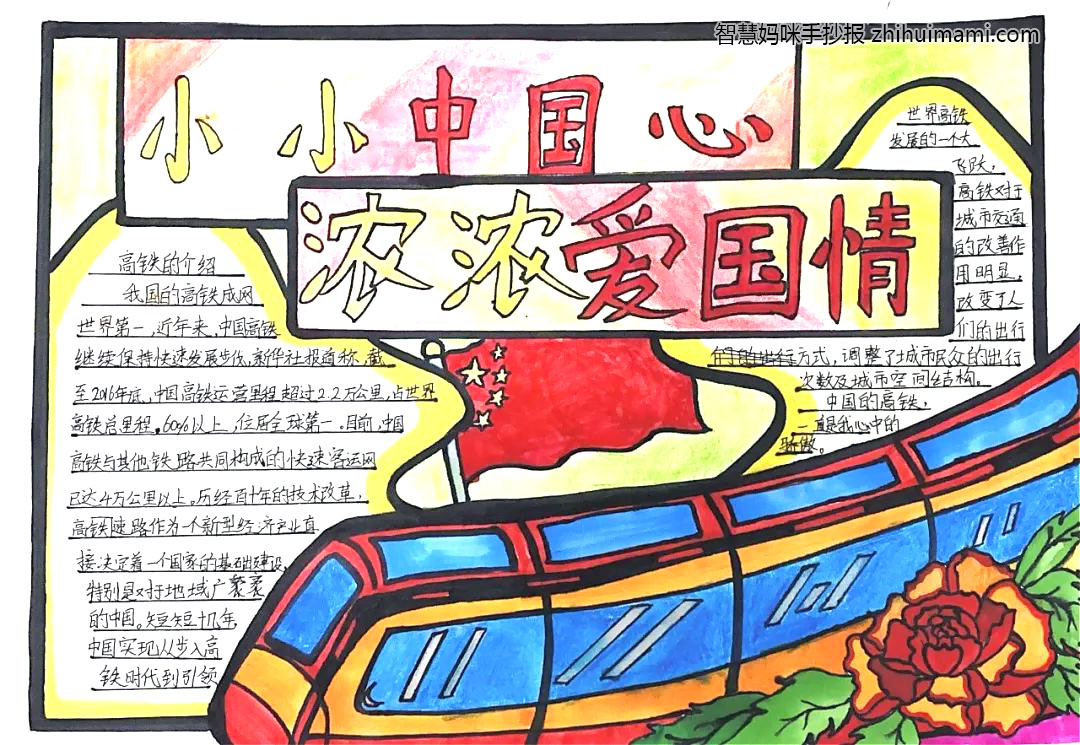 智慧妈咪手抄报 zhihuimami.com
小小中国心
浓浓爱国情
高铁的介绍
我国的高铁成网
世界第一,近年来,中国高铁
继续保持快速发展步伐,新华社报首称,截
至2016年底,中国高铁运营里程超过2.2万公里,占世界
高铁总里程,60%以上,位居全球第一。目前,中国
高铁与其他铁路共同构成的快速客运网
已达4万公里以上。历经百十年的技术改革,
高铁速路作为一个新型经济产业直
接决定着一个国家的基础建设,
特别是对于地域广袤
的中国。短短十几年,
中国实现从步入高
铁时代到引领
世界高铁
发展的一个大
飞跃,
高铁对于
城市交通
的改善作
用明显,
改变了人
们的出行
方式,调整了城市民众的出行
次数及城市空间结构。
中国的高铁,
一直是我心中的
骄傲。